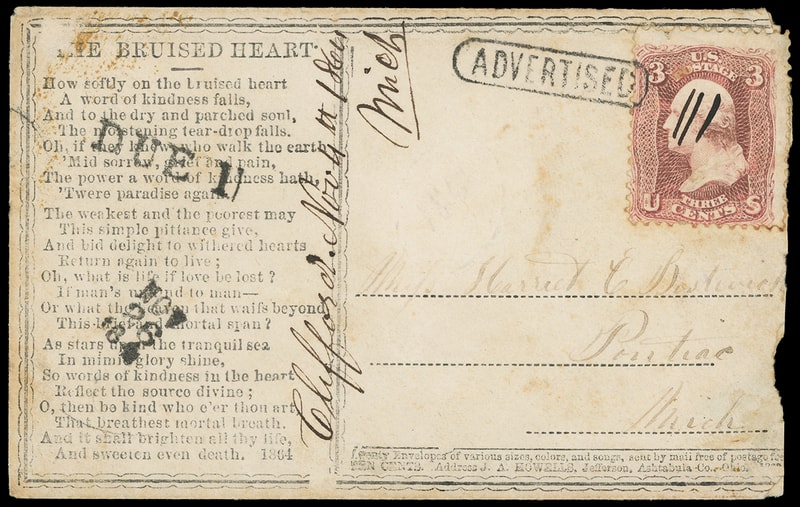 THE BRUISED HEART
How softly on the bruised heart
A word of kindness falls,
And to the dry and parched soul,
The moistening tear-drop falls.
Oh, if they knew who walk the earth
'Mid sorrow, grief and pain,
The power a word of kindness hath,
'Twere paradise again.
The weakest and the poorest may
This simple pittance give,
And bid delight to withered hearts
Return again to live;
Oh, what is life if love be lost?
If man's unkind to man—
Or what the heaven that waits beyond
This brief and mortal span?
As stars upon the tranquil sea
In mimic glory shine,
So words of kindness in the heart
Reflect the source divine;
O, then be kind who e'er thou art,
That breathest mortal breath.
And it shall brighten all thy life,
And sweeten even death. 1864
DUE 1
Clifford Nov 4th 1864
Mich
ADVERTISED
U.S. POSTAGE
3 3
THREE CENTS
U S
Miss Harriet E Bostwick
Pontiac
Mich
Twenty Envelopes of various sizes, colors, and songs, sent by mail free of postage for
TEN CENTS. Address J. A. HOWELLS, Jefferson, Ashtabula Co., Ohio.